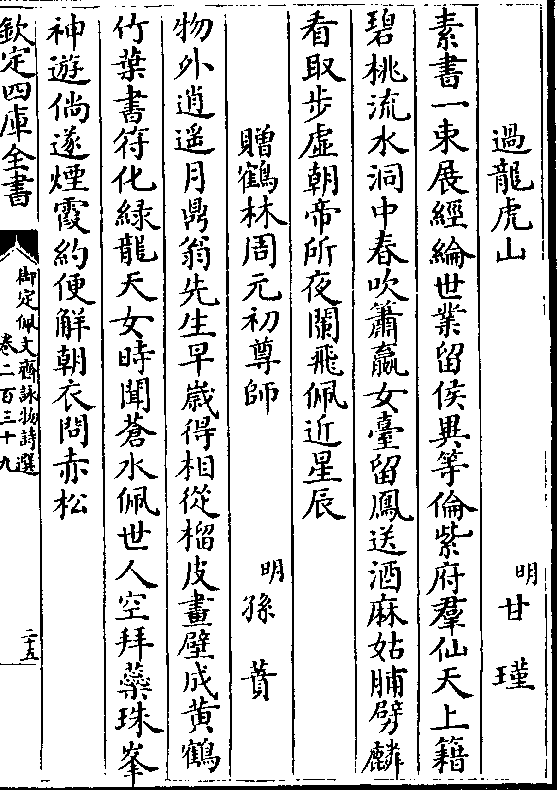 過龍虎山　明甘瑾
素書一束展經綸世業留侯異等倫紫府羣仙天上籍
碧桃流水洞中春吹簫嬴女臺留鳳送酒麻姑脯劈麟
看取步虛朝帝所夜闌飛佩近星辰
贈鶴林周元初尊師　明孫蕡
物外逍遥月鼎翁先生早歲得相從榴皮畫壁成黄鶴
竹葉書符化緑龍天女時聞蒼水佩世人空拜蘂珠峯
神遊倘遂煙霞約便解朝衣問赤松
欽定四庫全書
御定佩文齋詠物詩選
卷二百三十九
二十五